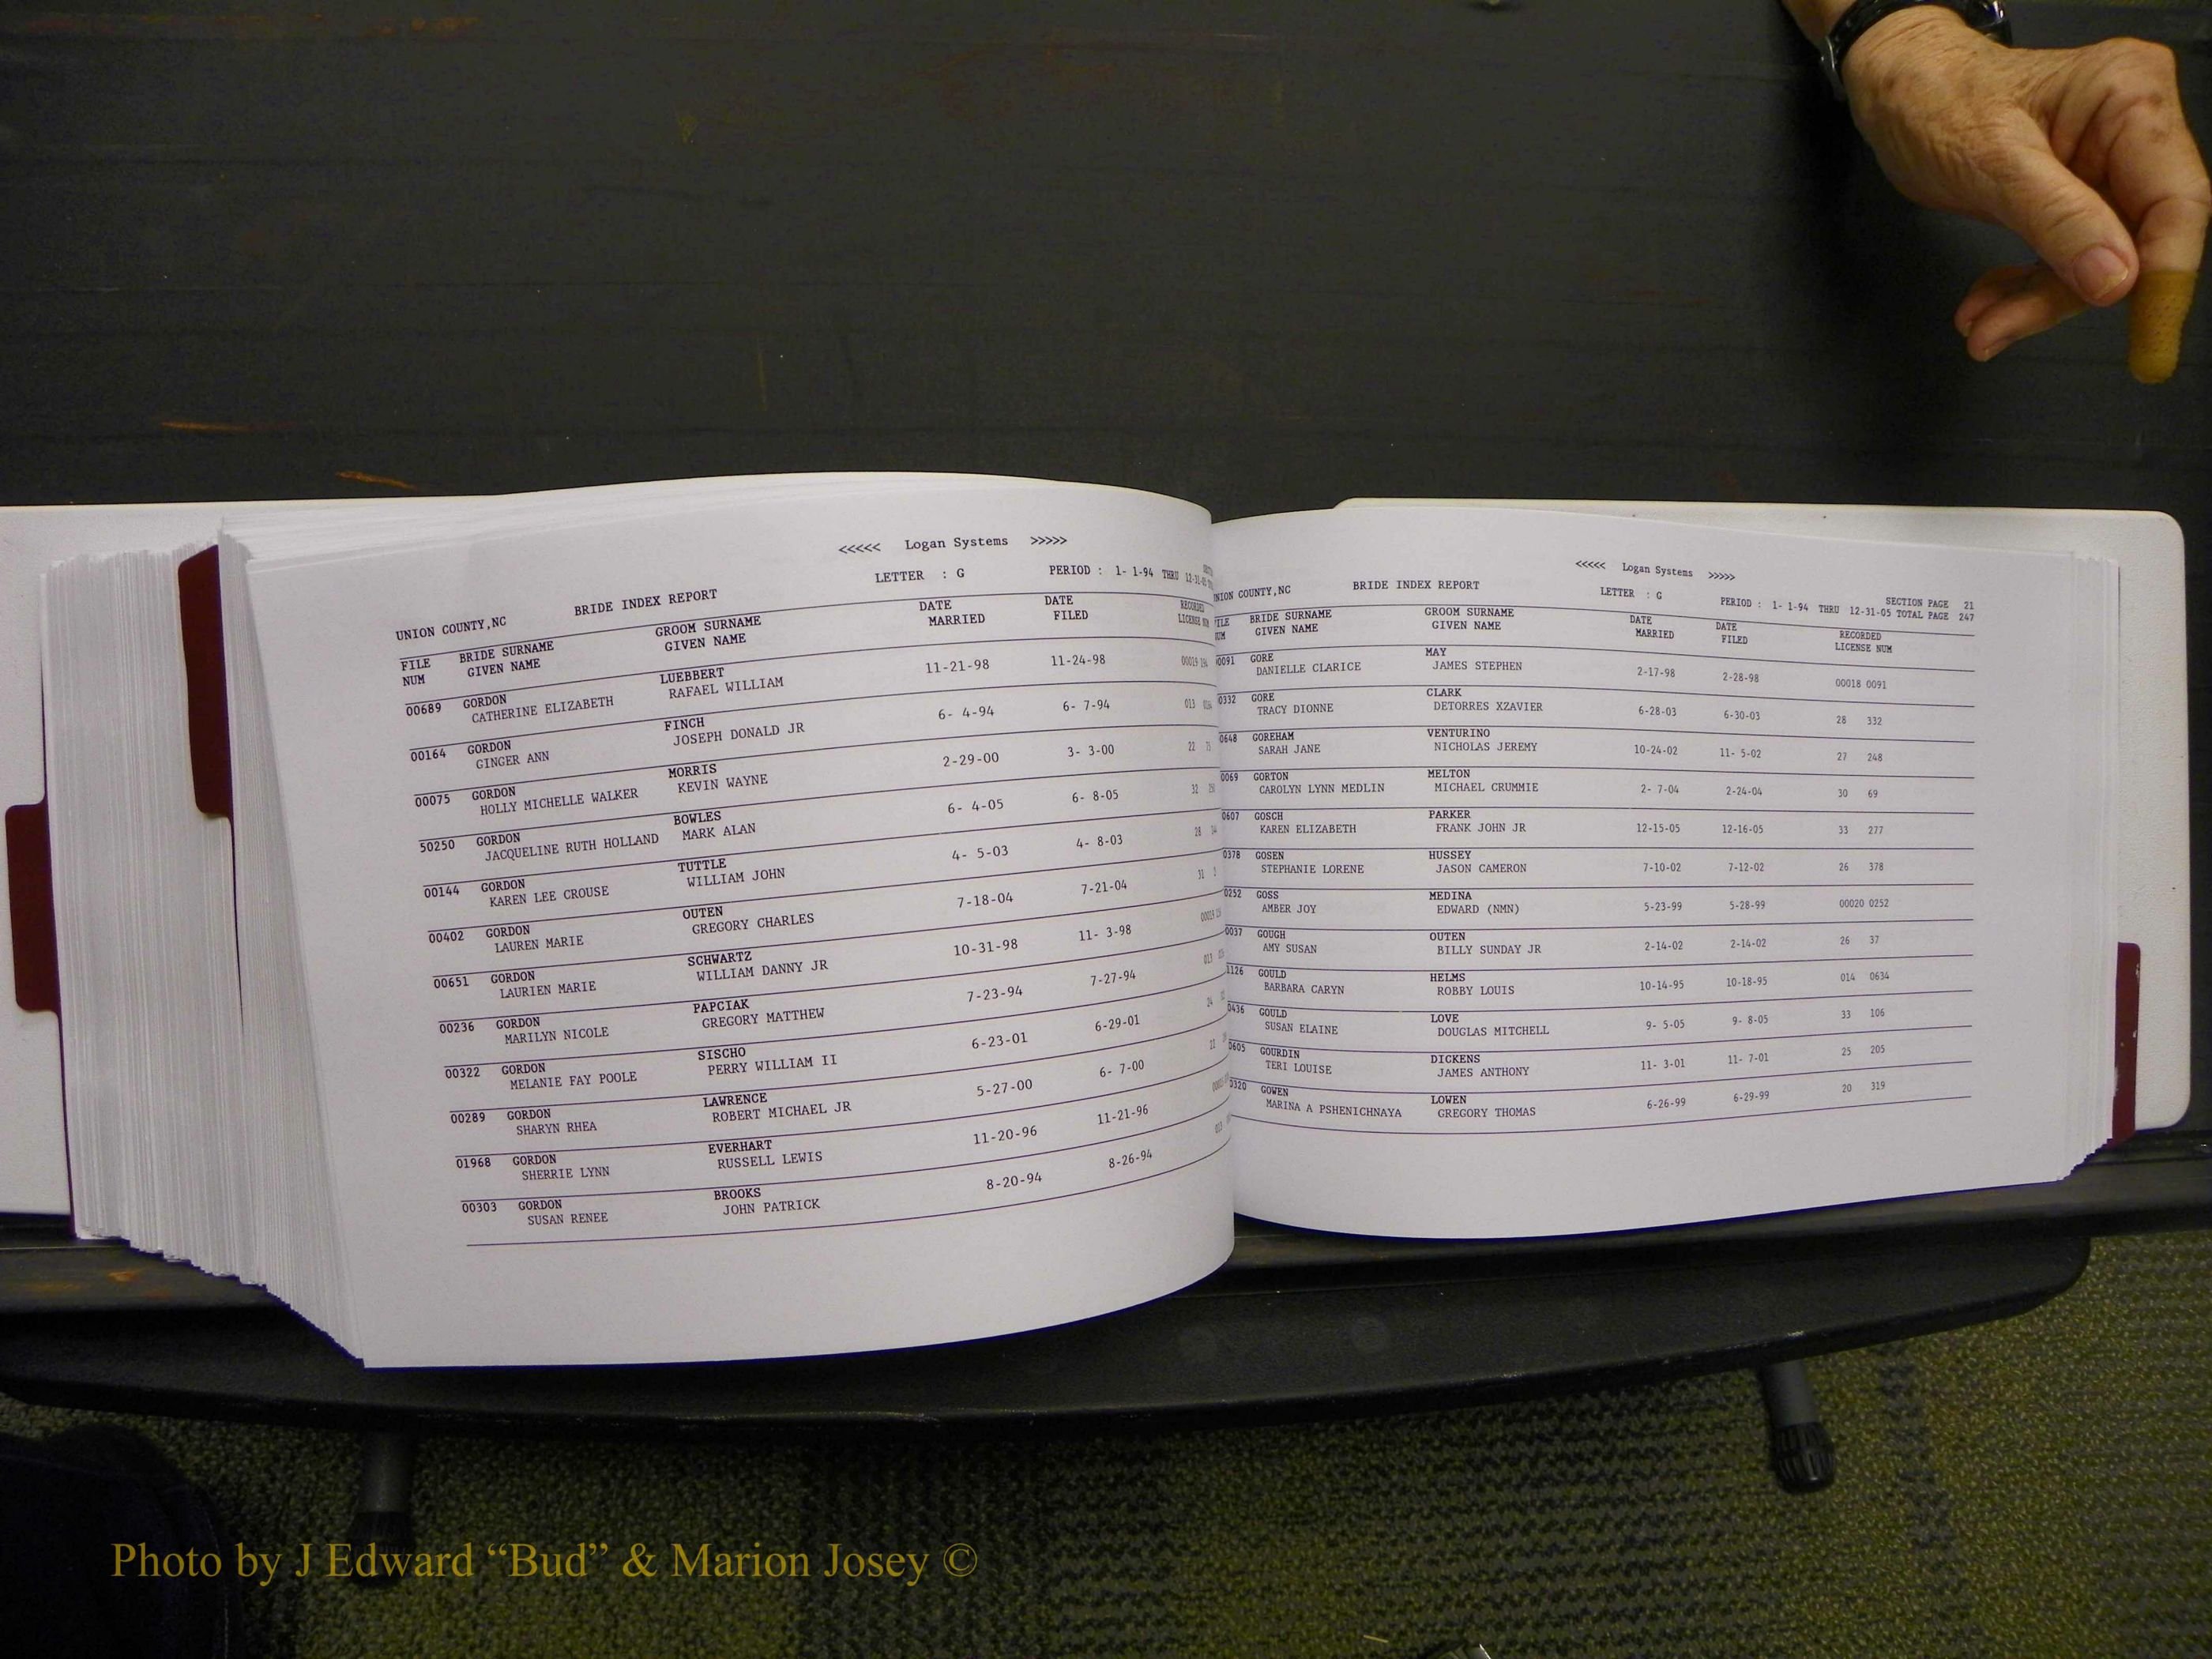 <<<<< Logan Systems >>>>>
UNION COUNTY,NC BRIDE INDEX REPORT LETTER : G PERIOD : 1- 1-94 THRU
FILE BRIDE SURNAME GROOM SURNAME DATE DATE RECORDED
NUM GIVEN NAME GIVEN NAME MARRIED FILED LICENSE
00689 GORDON LUEBBERT 11-21-98 11-24-98
CATHERINE ELIZABETH RAFAEL WILLIAM
00164 GORDON FINCH 6- 4-94 6- 7-94 013
GINGER ANN JOSEPH DONALD JR
00075 GORDON MORRIS 2-29-00 3- 3-00 22
HOLLY MICHELLE WALKER KEVIN WAYNE
50250 GORDON BOWLES 6- 4-05 6- 8-05 32
JACQUELINE RUTH HOLLAND MARK ALAN
00144 GORDON TUTTLE 4- 5-03 4- 8-03 28
KAREN LEE CROUSE WILLIAM JOHN
00402 GORDON OUTEN 7-18-04 7-21-04 31
LAUREN MARIE GREGORY CHARLES
00651 GORDON SCHWARTZ 10-31-98 11- 3-98
LAURIEN MARIE WILLIAM DANNY JR
00236 GORDON PAPCIAK 7-23-94 7-27-94 013
MARILYN NICOLE GREGORY MATTHEW
00322 GORDON SISCHO 6-23-01 6-29-01 24
MELANIE FAY POOLE PERRY WILLIAM II
00289 GORDON LAWRENCE 5-27-00 6- 7-00 22
SHARYN RHEA ROBERT MICHAEL JR
01968 GORDON EVERHART 11-20-96 11-21-96
SHERRIE LYNN RUSSELL LEWIS
00303 GORDON BROOKS 8-20-94 8-26-94 013
SUSAN RENEE JOHN PATRICK
<<<<< Logan Systems >>>>>
SECTION PAGE 21
COUNTY,NC BRIDE INDEX REPORT LETTER : G PERIOD : 1- 1-94 THRU 12-31-05 TOTAL PAGE 247
FILE BRIDE SURNAME GROOM SURNAME DATE DATE RECORDED
GIVEN NAME GIVEN NAME MARRIED FILED LICENSE NUM
0091 GORE MAY 2-17-98 2-28-98 00018 0091
DANIELLE CLARICE JAMES STEPHEN
0332 GORE CLARK 6-28-03 6-30-03 28 332
TRACY DIONNE DETORRES XZAVIER
0648 GOREHAM VENTURINO 10-24-02 11- 5-02 27 248
SARAH JANE NICHOLAS JEREMY
0069 GORTON MELTON 2- 7-04 2-24-04 30 69
CAROLYN LYNN MEDLIN MICHAEL CRUMMIE
0607 GOSCH PARKER 12-15-05 12-16-05 33 277
KAREN ELIZABETH FRANK JOHN JR
0378 GOSEN HUSSEY 7-10-02 7-12-02 26 378
STEPHANIE LORENE JASON CAMERON
0252 GOSS MEDINA 5-23-99 5-28-99 00020 0252
AMBER JOY EDWARD (NMN)
0037 GOUGH OUTEN 2-14-02 2-14-02 26 37
AMY SUSAN BILLY SUNDAY JR
1126 GOULD HELMS 10-14-95 10-18-95 014 0634
BARBARA CARYN ROBBY LOUIS
0436 GOULD LOVE 9- 5-05 9- 8-05 33 106
SUSAN ELAINE DOUGLAS MITCHELL
0605 GOURDIN DICKENS 11- 3-01 11- 7-01 25 205
TERI LOUISE JAMES ANTHONY
0320 GOWEN LOWEN 6-26-99 6-29-99 20 319
MARINA A PSHENICHNAYA GREGORY THOMAS
Photo by J Edward “Bud” & Marion Josey ©